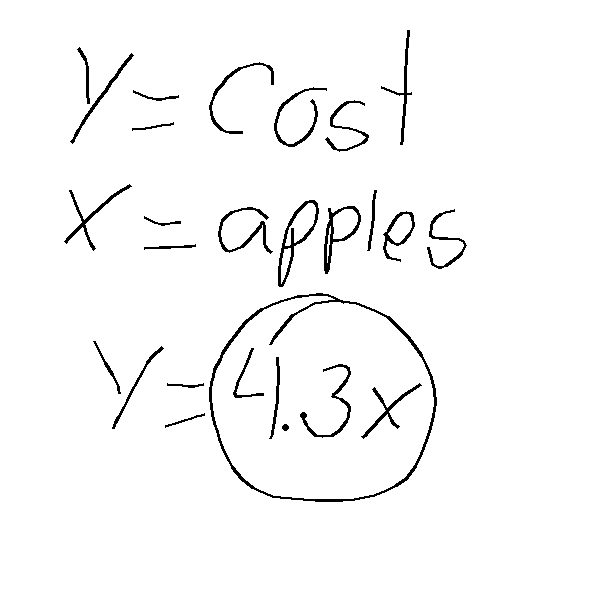 Y = Cost
X = apples
Y = 4.3x